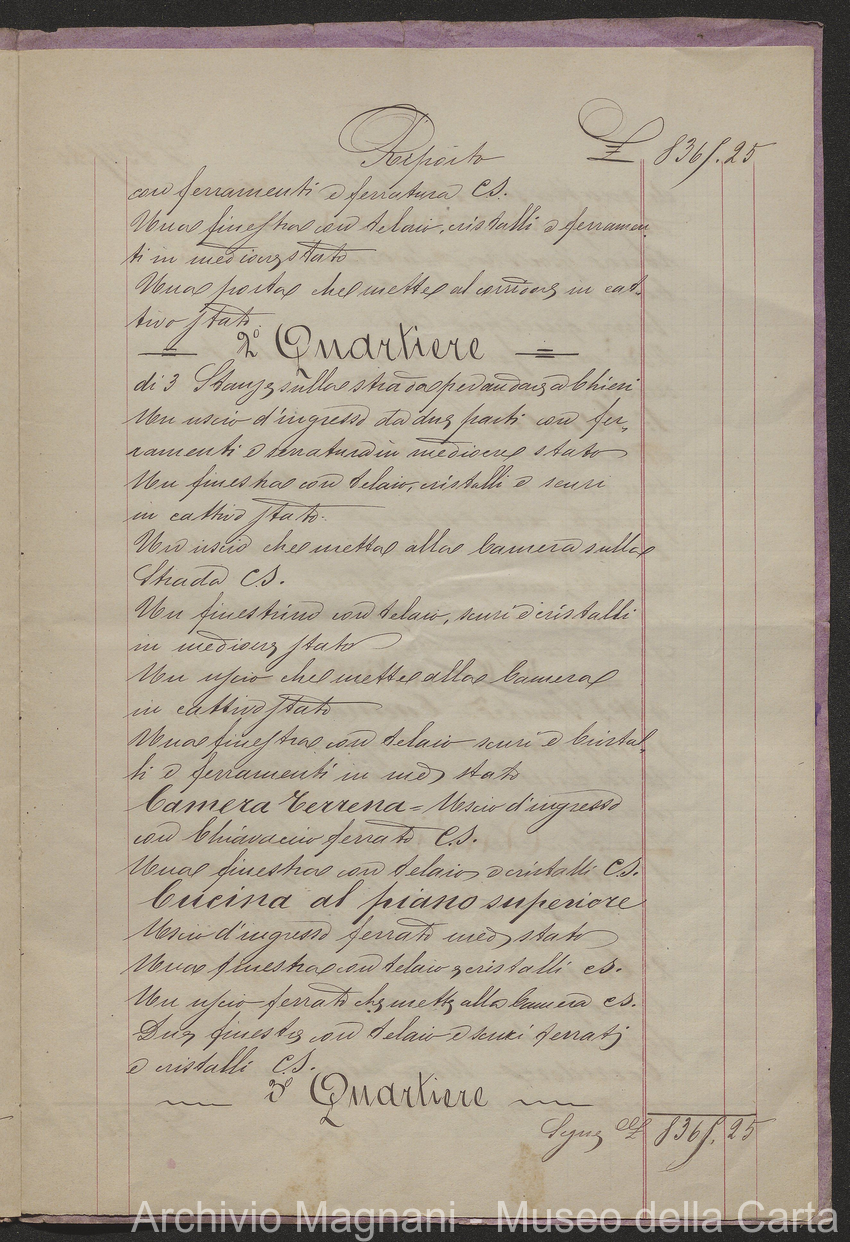 Riporto £ 8365.25
con ferramenti e serratura CS.
Una finestra con telaio, cristalli e ferramen
ti in mediocre stato
Una porta che mette al corridore in cat-
tivo stato
2º Quartiere
di 3 Stanze sulla strada per andare a Chieri
Un uscio d'ingresso da due parti con fer-
ramenti e serratura in mediocre stato
Un finestra con telaio, cristalli e scuri
in cattivo stato.
Un uscio che mette alla Camera sulla
Strada CS.
Un finestrino con telaio, scuri e cristalli
in mediocre stato
Un uscio che mette alla Camera
in cattivo stato
Una finestra con telaio scuri e Cristal-
li e ferramenti in med. stato
Camera Terrena = Uscio d'ingresso
con Chiavaccio ferrato CS.
Una finestra con telaio e cristalli CS.
Cucina al piano superiore
Uscio d'ingresso ferrato med. stato
Una finestra con telaio e cristalli CS.
Un uscio ferrato che mette alla Camera CS.
Due finestre con telaio e scuri ferrati
e cristalli CS.
3º Quartiere
Segue £ 8365.25
Archivio Magnani - Museo della Carta